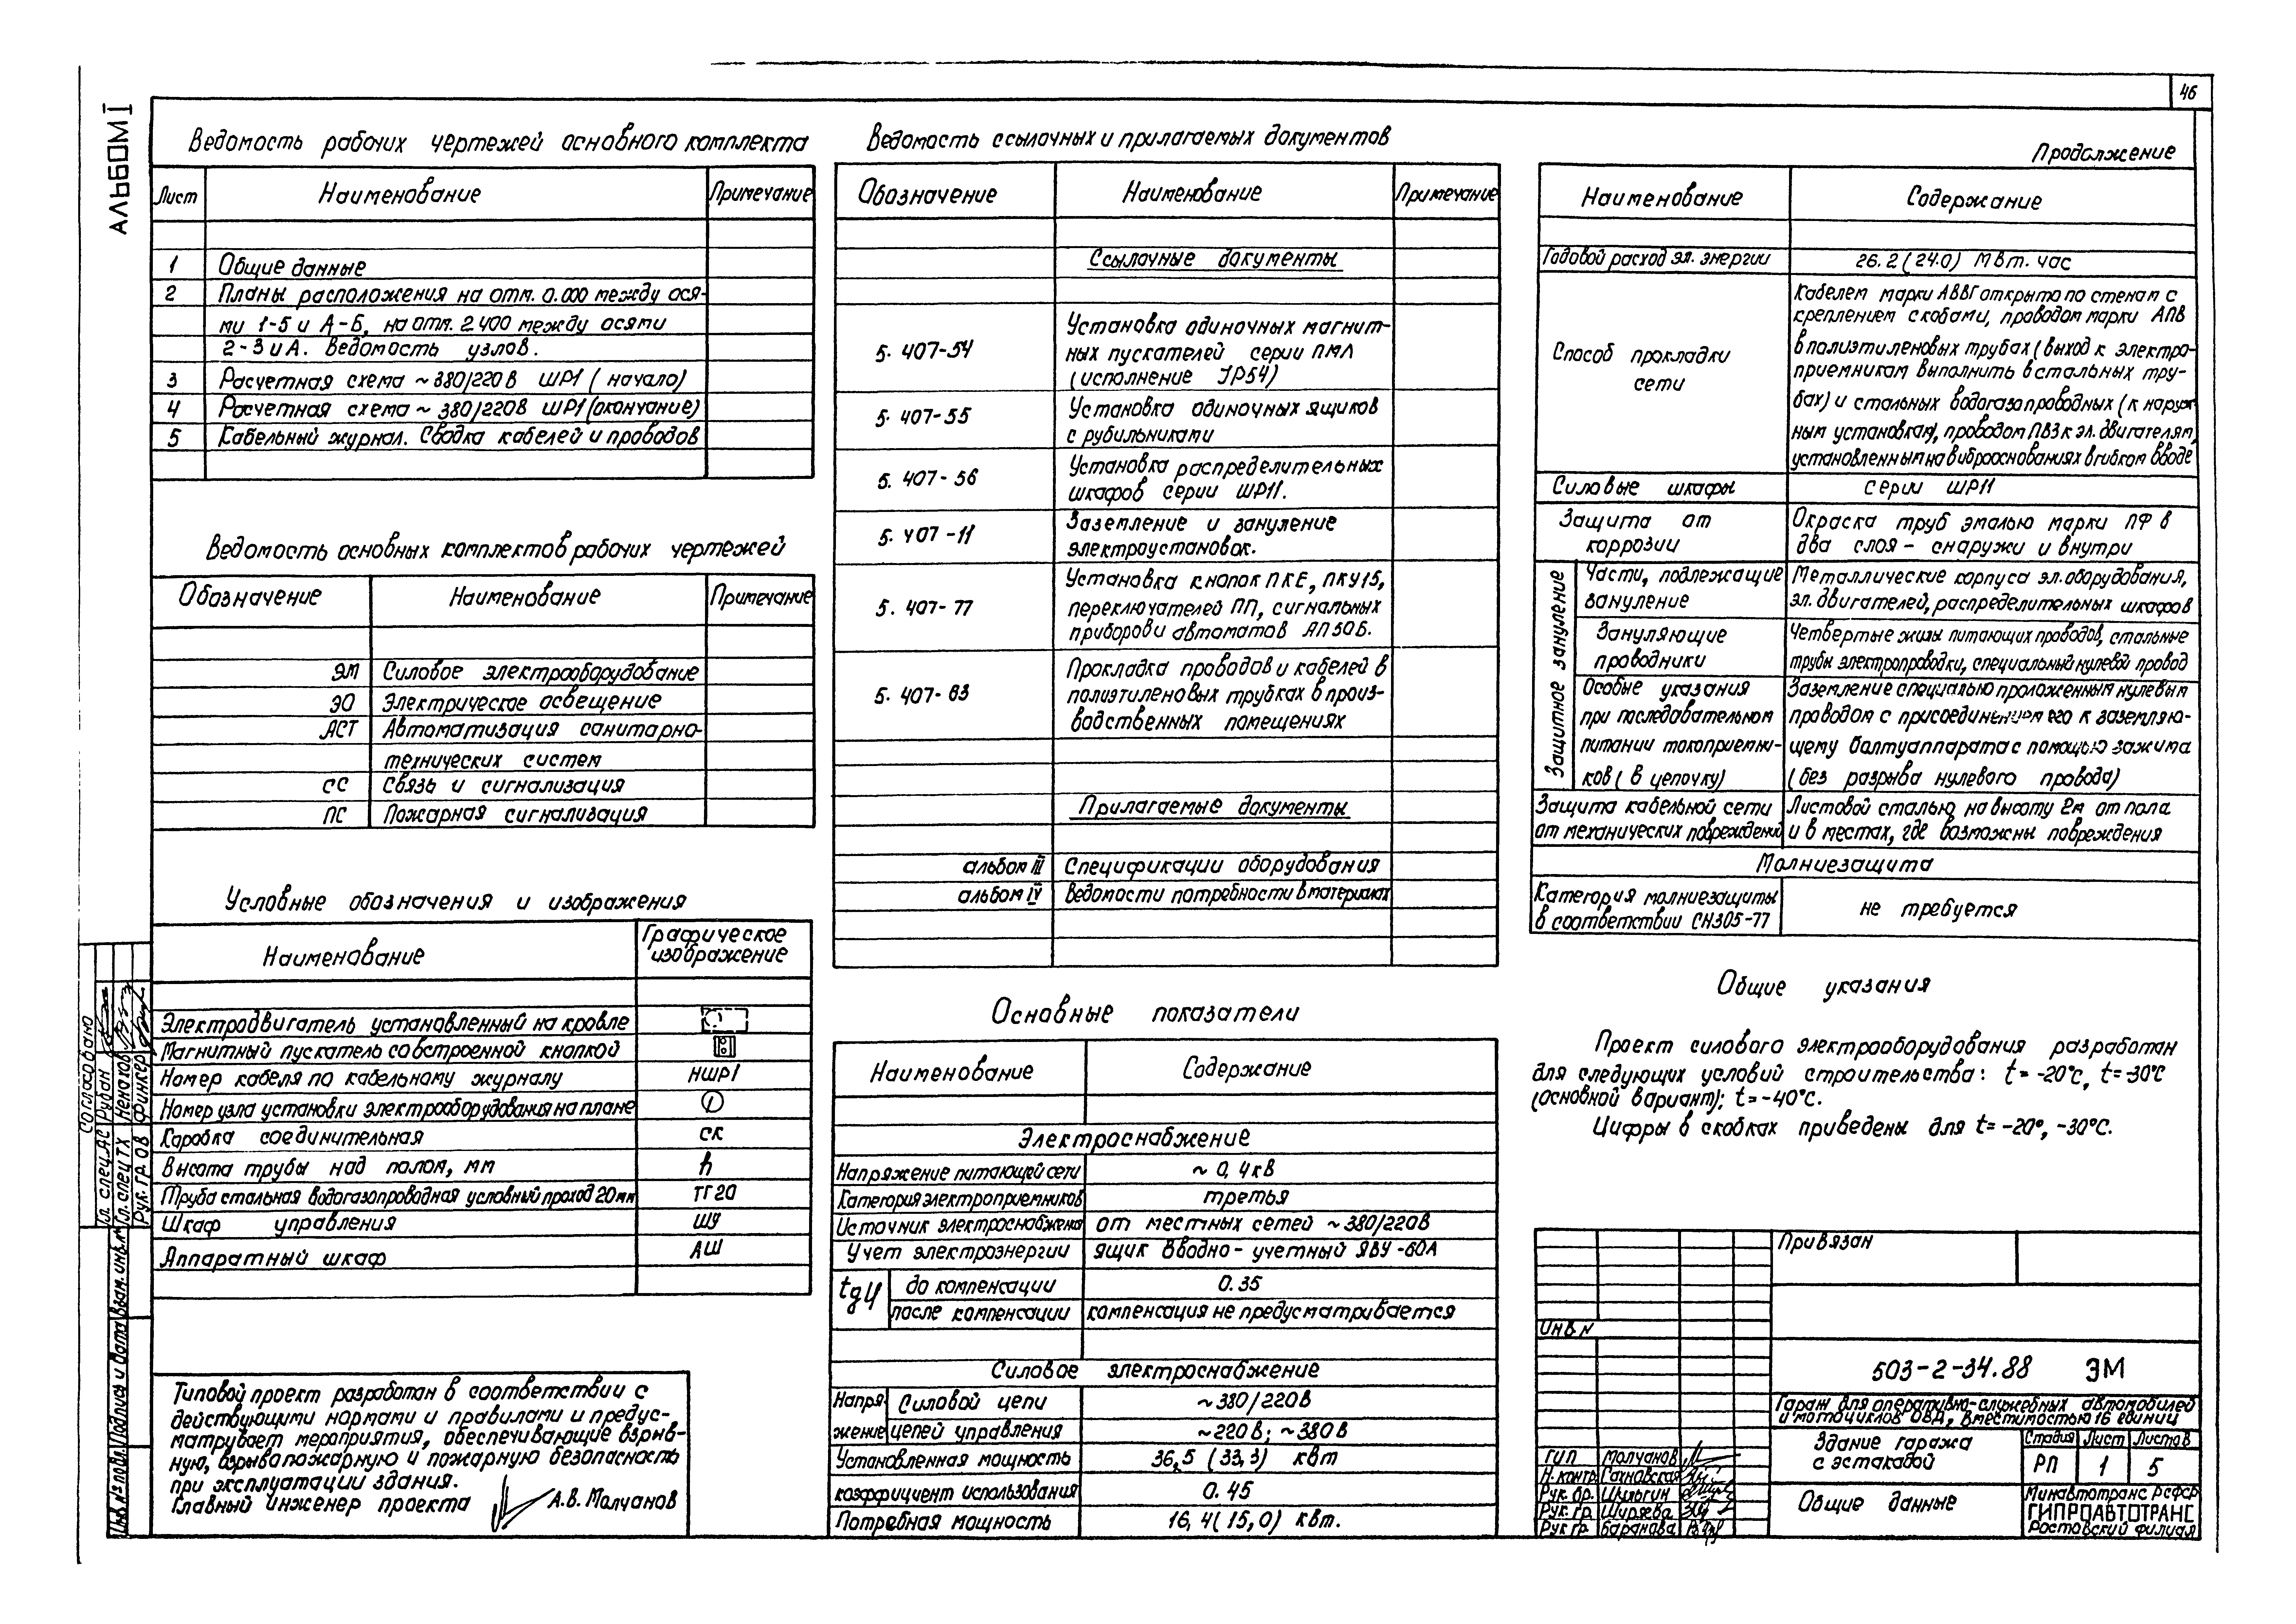 46
АЛЬБОМ I
Ведомость рабочих чертежей основного комплекта
Лист Наименование Примечание
1 Общие данные
2 Планы расположения на отм. 0.000 между ося-
ми 1-5 и А-Б, на отм. 2.400 между осями
2-3 и А. Ведомость узлов.
3 Расчетная схема ~380/220В ШР1 (начало)
4 Расчетная схема ~380/220В ШР1 (окончание)
5 Кабельный журнал. Сводка кабелей и проводов
Ведомость основных комплектов рабочих чертежей
Обозначение Наименование Примечание
ЭМ Силовое электрооборудование
ЭО Электрическое освещение
АСТ Автоматизация санитарно-
технических систем
СС Связь и сигнализация
ПС Пожарная сигнализация
Условные обозначения и изображения
Наименование Графическое
изображение
Электродвигатель установленный на кровле
Магнитный пускатель со встроенной кнопкой
Номер кабеля по кабельному журналу НШР1
Номер узла установки электрооборудования на плане 1
Коробка соединительная СК
Высота трубы над полом, мм h
Труба стальная водогазопроводная условный проход 20мм ТГ20
Шкаф управления ШУ
Аппаратный шкаф АШ
Типовой проект разработан в соответствии с
действующими нормами и правилами и предус-
матривает мероприятия, обеспечивающие взрыв-
ную, взрывопожарную и пожарную безопасность
при эксплуатации здания.
Главный инженер проекта А.В. Молчанов
Ведомость ссылочных и прилагаемых документов
Обозначение Наименование Примечание
Ссылочные документы
5.407-54 Установка одиночных магнит-
ных пускателей серии ПМЛ
(исполнение JP54)
5.407-55 Установка одиночных ящиков
с рубильниками
5.407-56 Установка распределительных
шкафов серии ШР11.
5.407-11 Заземление и зануление
электроустановок.
5.407-77 Установка кнопок ПКЕ, ПКУ15,
переключателей ПП, сигнальных
приборов и автоматов АП50Б.
5.407-83 Прокладка проводов и кабелей в
полиэтиленовых трубках в произ-
водственных помещениях
Прилагаемые документы
альбом III Спецификации оборудования
альбом IV Ведомости потребности в материалах
Основные показатели
Наименование Содержание
Электроснабжение
Напряжение питающей сети ~0,4кВ
Категория электроприемников третья
Источник электроснабжения от местных сетей ~380/220В
Учет электроэнергии ящик Вводно-учетный ЯВУ-60А
tgЧ до компенсации 0.35
после компенсации компенсация не предусматривается
Силовое электроснабжение
Напря- Силовой цепи ~380/220В
жение цепей управления ~220В; ~380В
Установленная мощность 36,5 (33,3) кВт
коэффициент использования 0.45
Потребная мощность 16,4(15,0) кВт.
Продолжение
Наименование Содержание
Годовой расход эл. энергии 26.2 (24.0) МВт. час
Способ прокладки
сети
Кабелем марки АВВГ открыто по стенам с
креплением скобами, проводом марки АПВ
в полиэтиленовых трубах (выход к электро-
приемникам выполнить в стальных тру-
бах) и стальных водогазопроводных (к наруж-
ным установкам), проводом ПВ3 к эл. двигателям,
установленным на виброоснованиях в гибком вводе
Силовые шкафы серии ШР11
Защита от
коррозии
Окраска труб эмалью марки ПФ в
два слоя - снаружи и внутри
Защитное зануление
Части, подлежащие
зануление
Металлические корпуса эл. оборудования,
эл. двигателей, распределительных шкафов
Зануляющие
проводники
Четвертые жилы питающих проводов, стальные
трубы электропроводки, специальный нулевой провод
Особые указания
при последовательном
питании токоприемни-
ков (в цепочку)
Заземление специально проложенным нулевым
проводом с присоединением его к заземляю-
щему болту аппарата с помощью зажима
(без разрыва нулевого провода)
Защита кабельной сети
от механических повреждений
Листовой сталью на высоту 2м от пола
и в местах, где возможны повреждения
Молниезащита
Категория молниезащиты
в соответствии СН305-77
не требуется
Общие указания
Проект силового электрооборудования разработан
для следующих условий строительства: t=-20°С, t=-30°С
(основной вариант); t=-40°С.
Цифры в скобках приведены для t=-20°, -30°С.
Привязан
Инв N
503-2-34.88 ЭМ
Гараж для оперативно-служебных автомобилей
и мотоциклов ОВД, вместимостью 16 единиц
Здание гаража
с эстакадой
Стадия Лист Листов
РП 1 5
Общие данные
Минавтотранс РСФСР
ГИПРОАВТОТРАНС
Ростовский филиал
ГИП Молчанов
Н. контр. Сахновская
Рук. бр. Шульгин
Рук. гр. Шуряева
Рук. гр. Баранова
Согласовано
Гл. спец. АС Рубан
Гл. спец. ТХ
Рук. гр. ОВ Финкер
Взам. инв. №
Подпись и дата
Инв. № подл.